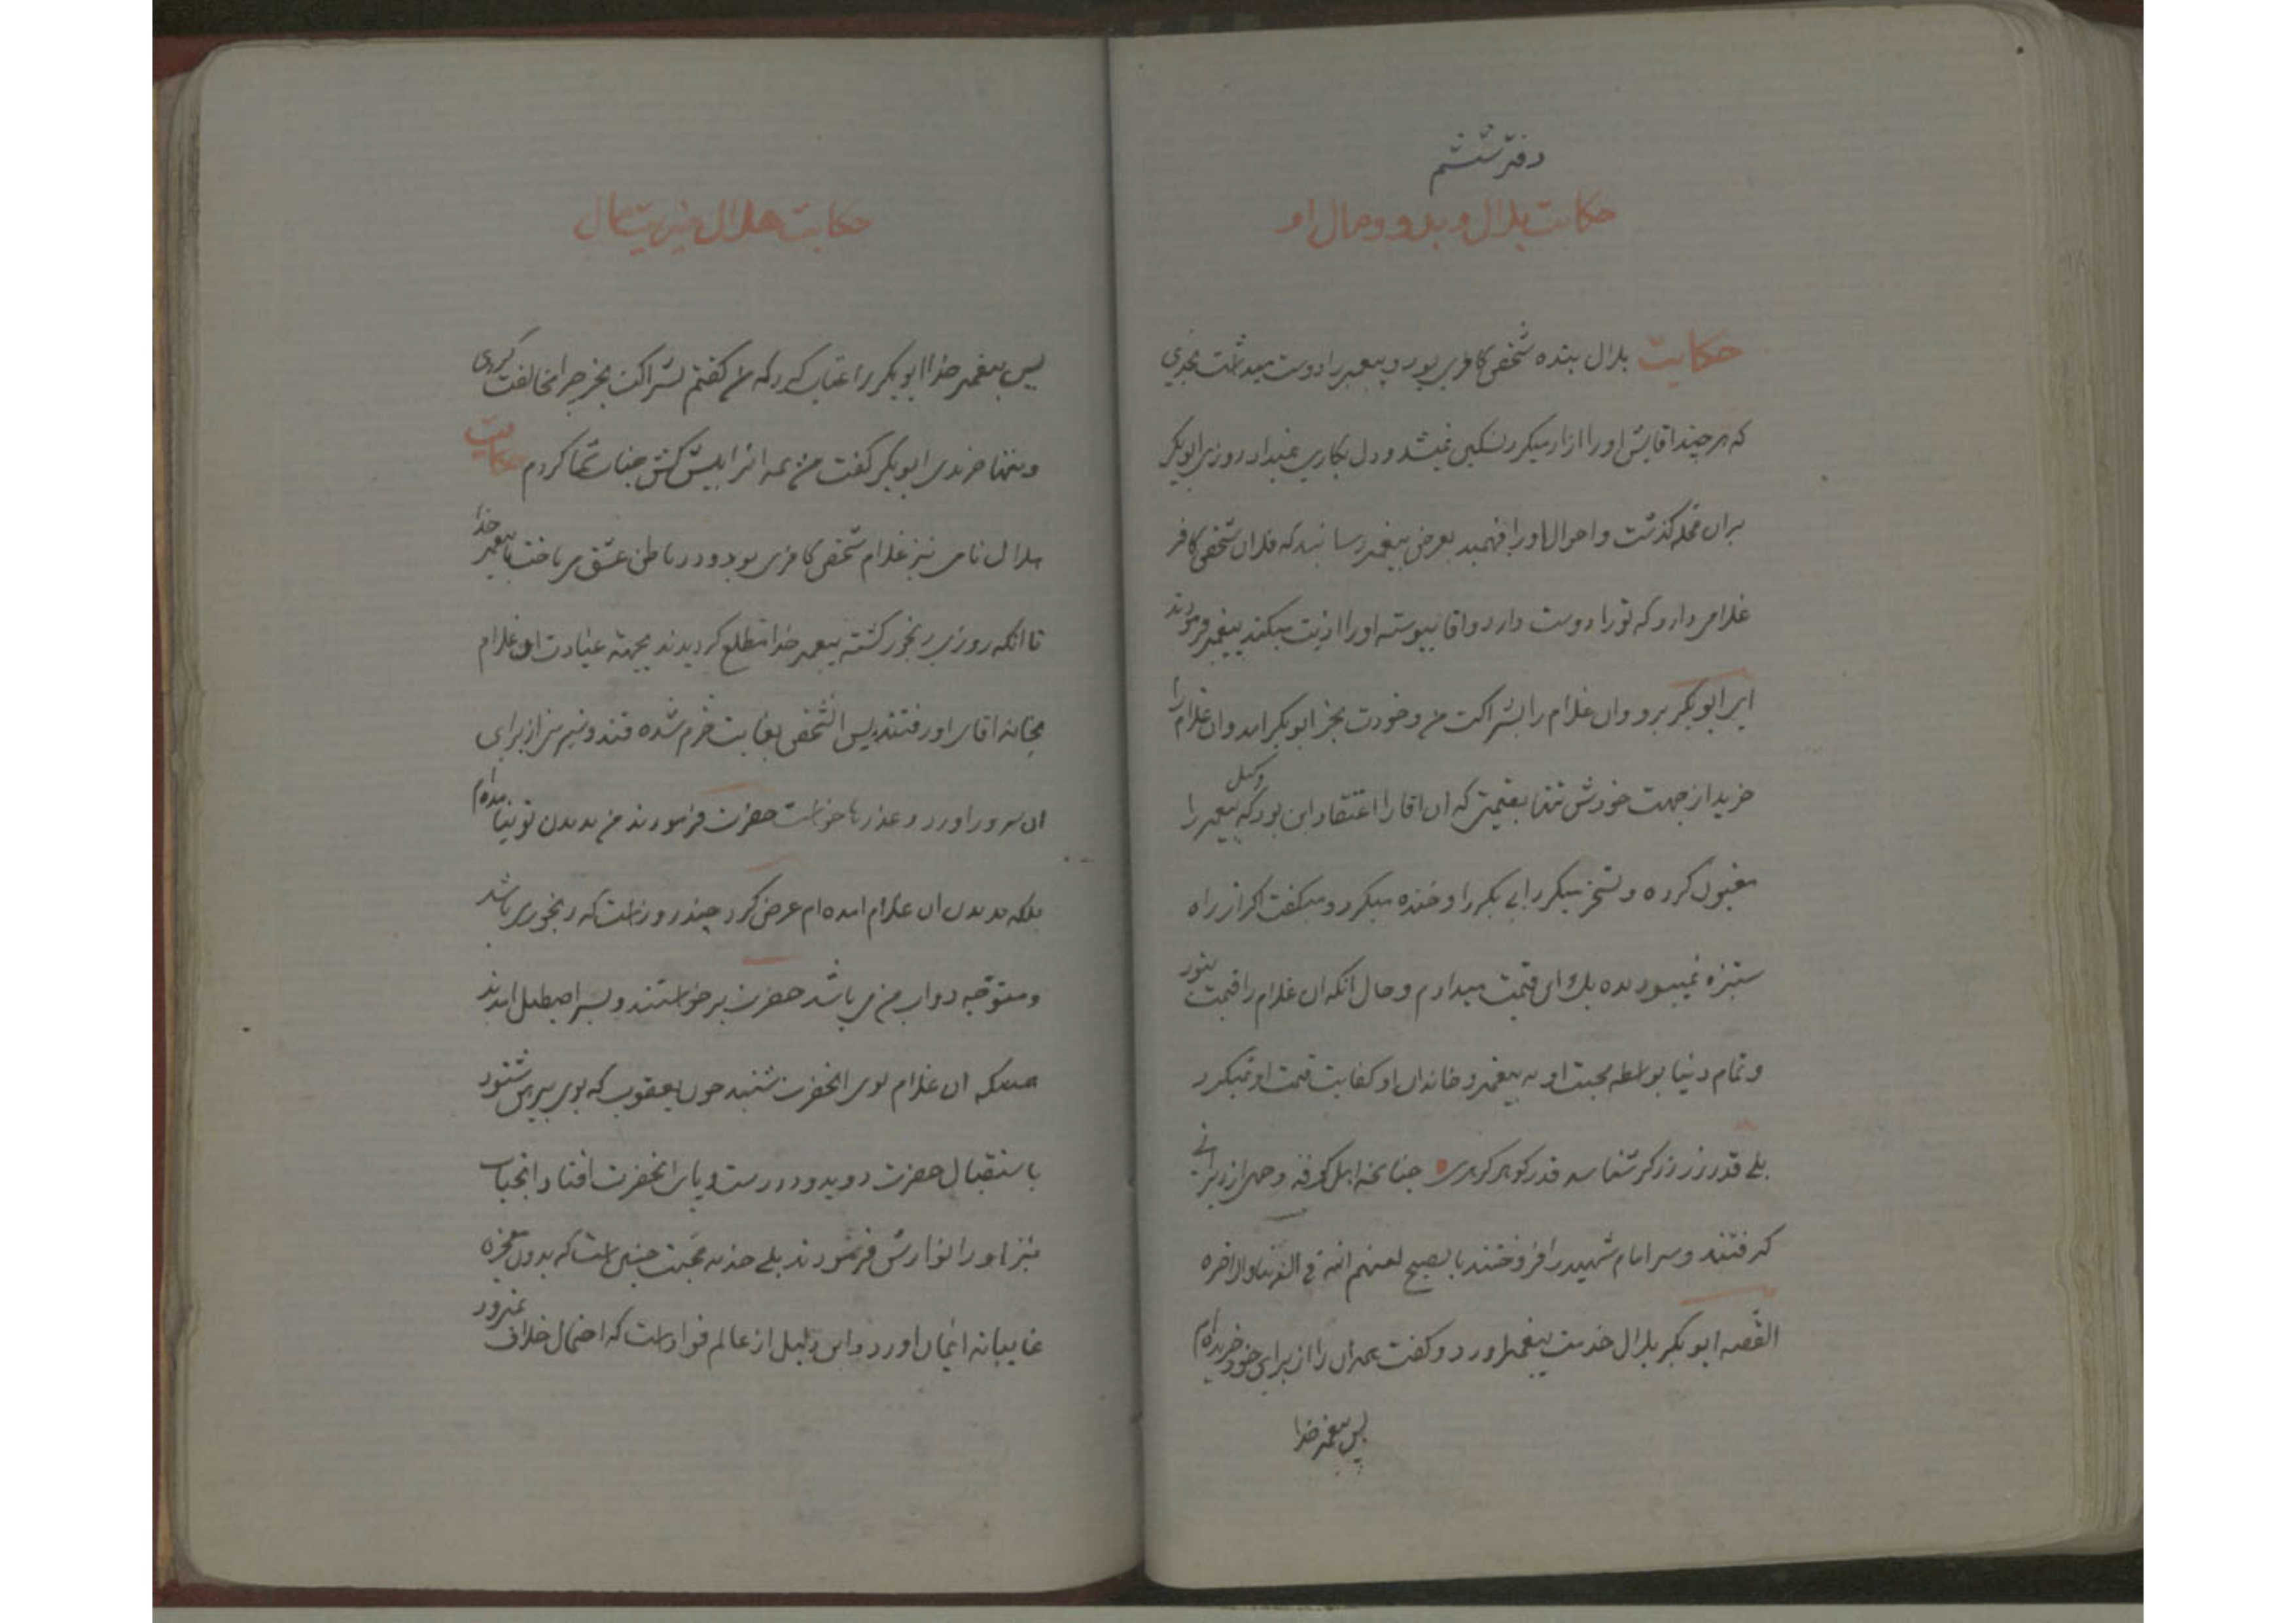 دفتر ششم
حکایت بلال و بدو و حال او
حکایت بلال بنده شخص کافری بود و پیغمبر را دوست میداشت بحدی
که هر چند اقایش او را ازار میکرد تسکین نمیشد و دل بکاری نمیداد روزی ابوبکر
بران محله گذشت و احوال او را فهمید بعرض پیغمبر رسانید که فلان شخص کافر
غلامی دارد که تو را دوست دارد و اقا پیوسته او را اذیت میکند پیغمبر فرمودند
ای ابوبکر برو و ان غلام را بشراکت من و خودت بخر ابوبکر امد و ان غلام را
خرید از جهت خودش تنها بقیمتی که ان اقا را اعتقاد این بود که پیغمبر را وکیل
مغبون کرده و تسخر میکرد ابی بکر را و خنده میکرد و میکفت اکر از راه
ستیزه نمیبود بده یک این قیمت میدادم و حال انکه ان غلام را قیمت نبود
و تمام دنیا بواسطه محبت او به پیغمبر و خاندان او کفایت قیمت او نمیکرد
بلی قدر زر زرکر شناسد قدر کوهر کوهری چنانچه اهل کوفه وجهی از زر
کرفتند و سر امام شهید را فروختند لعنهم الله فی الدنیا والاخره
القصه ابوبکر بلال خدمت پیغمبر اورد و کفت همه ان را از برای خود خریده‌ام
پس پیغمبر خدا
حکایت هلال
پس پیغمبر خدا ابوبکر را عتاب کرد که من کفتم بشراکت بخر چرا مخالفت کردی
و تنها خریدی ابوبکر کفت من همه انرا پیش کش جناب شما کردم حکایت
هلال نامی نیز غلام شخص کافری بود و در باطن عشق می باخت با پیغمبر خدا
تا انکه روزی رنجور کشته پیغمبر خدا مطلع کردیدند بجهة عیادت ان غلام
بخانه اقای او رفتند پس الشخص بغایت خرم شده قند و شیرینی از برای
ان سرور اورد و عذرها خواست حضرت فرمودند من بدیدن تو نیامده‌ام
بلکه بدیدن ان غلام امده ام عرض کرد چند روز است که رنجوری باشد
و متوجه دواب من می باشد حضرت برخواستند و بسر اصطبل امدند
همینکه ان غلام بوی انحضرت شنید چون یعقوب که بوی پیرهن شنود
باستقبال حضرت دوید و در دست و پای انحضرت افتاد و انجناب
نیز او را نوازش فرمودند بلی جذبه محبت چنین است که بدون معجزه
غایبانه ایمان اورد و این دلیل از عالم فواد است که احتمال خلاف نمیرود